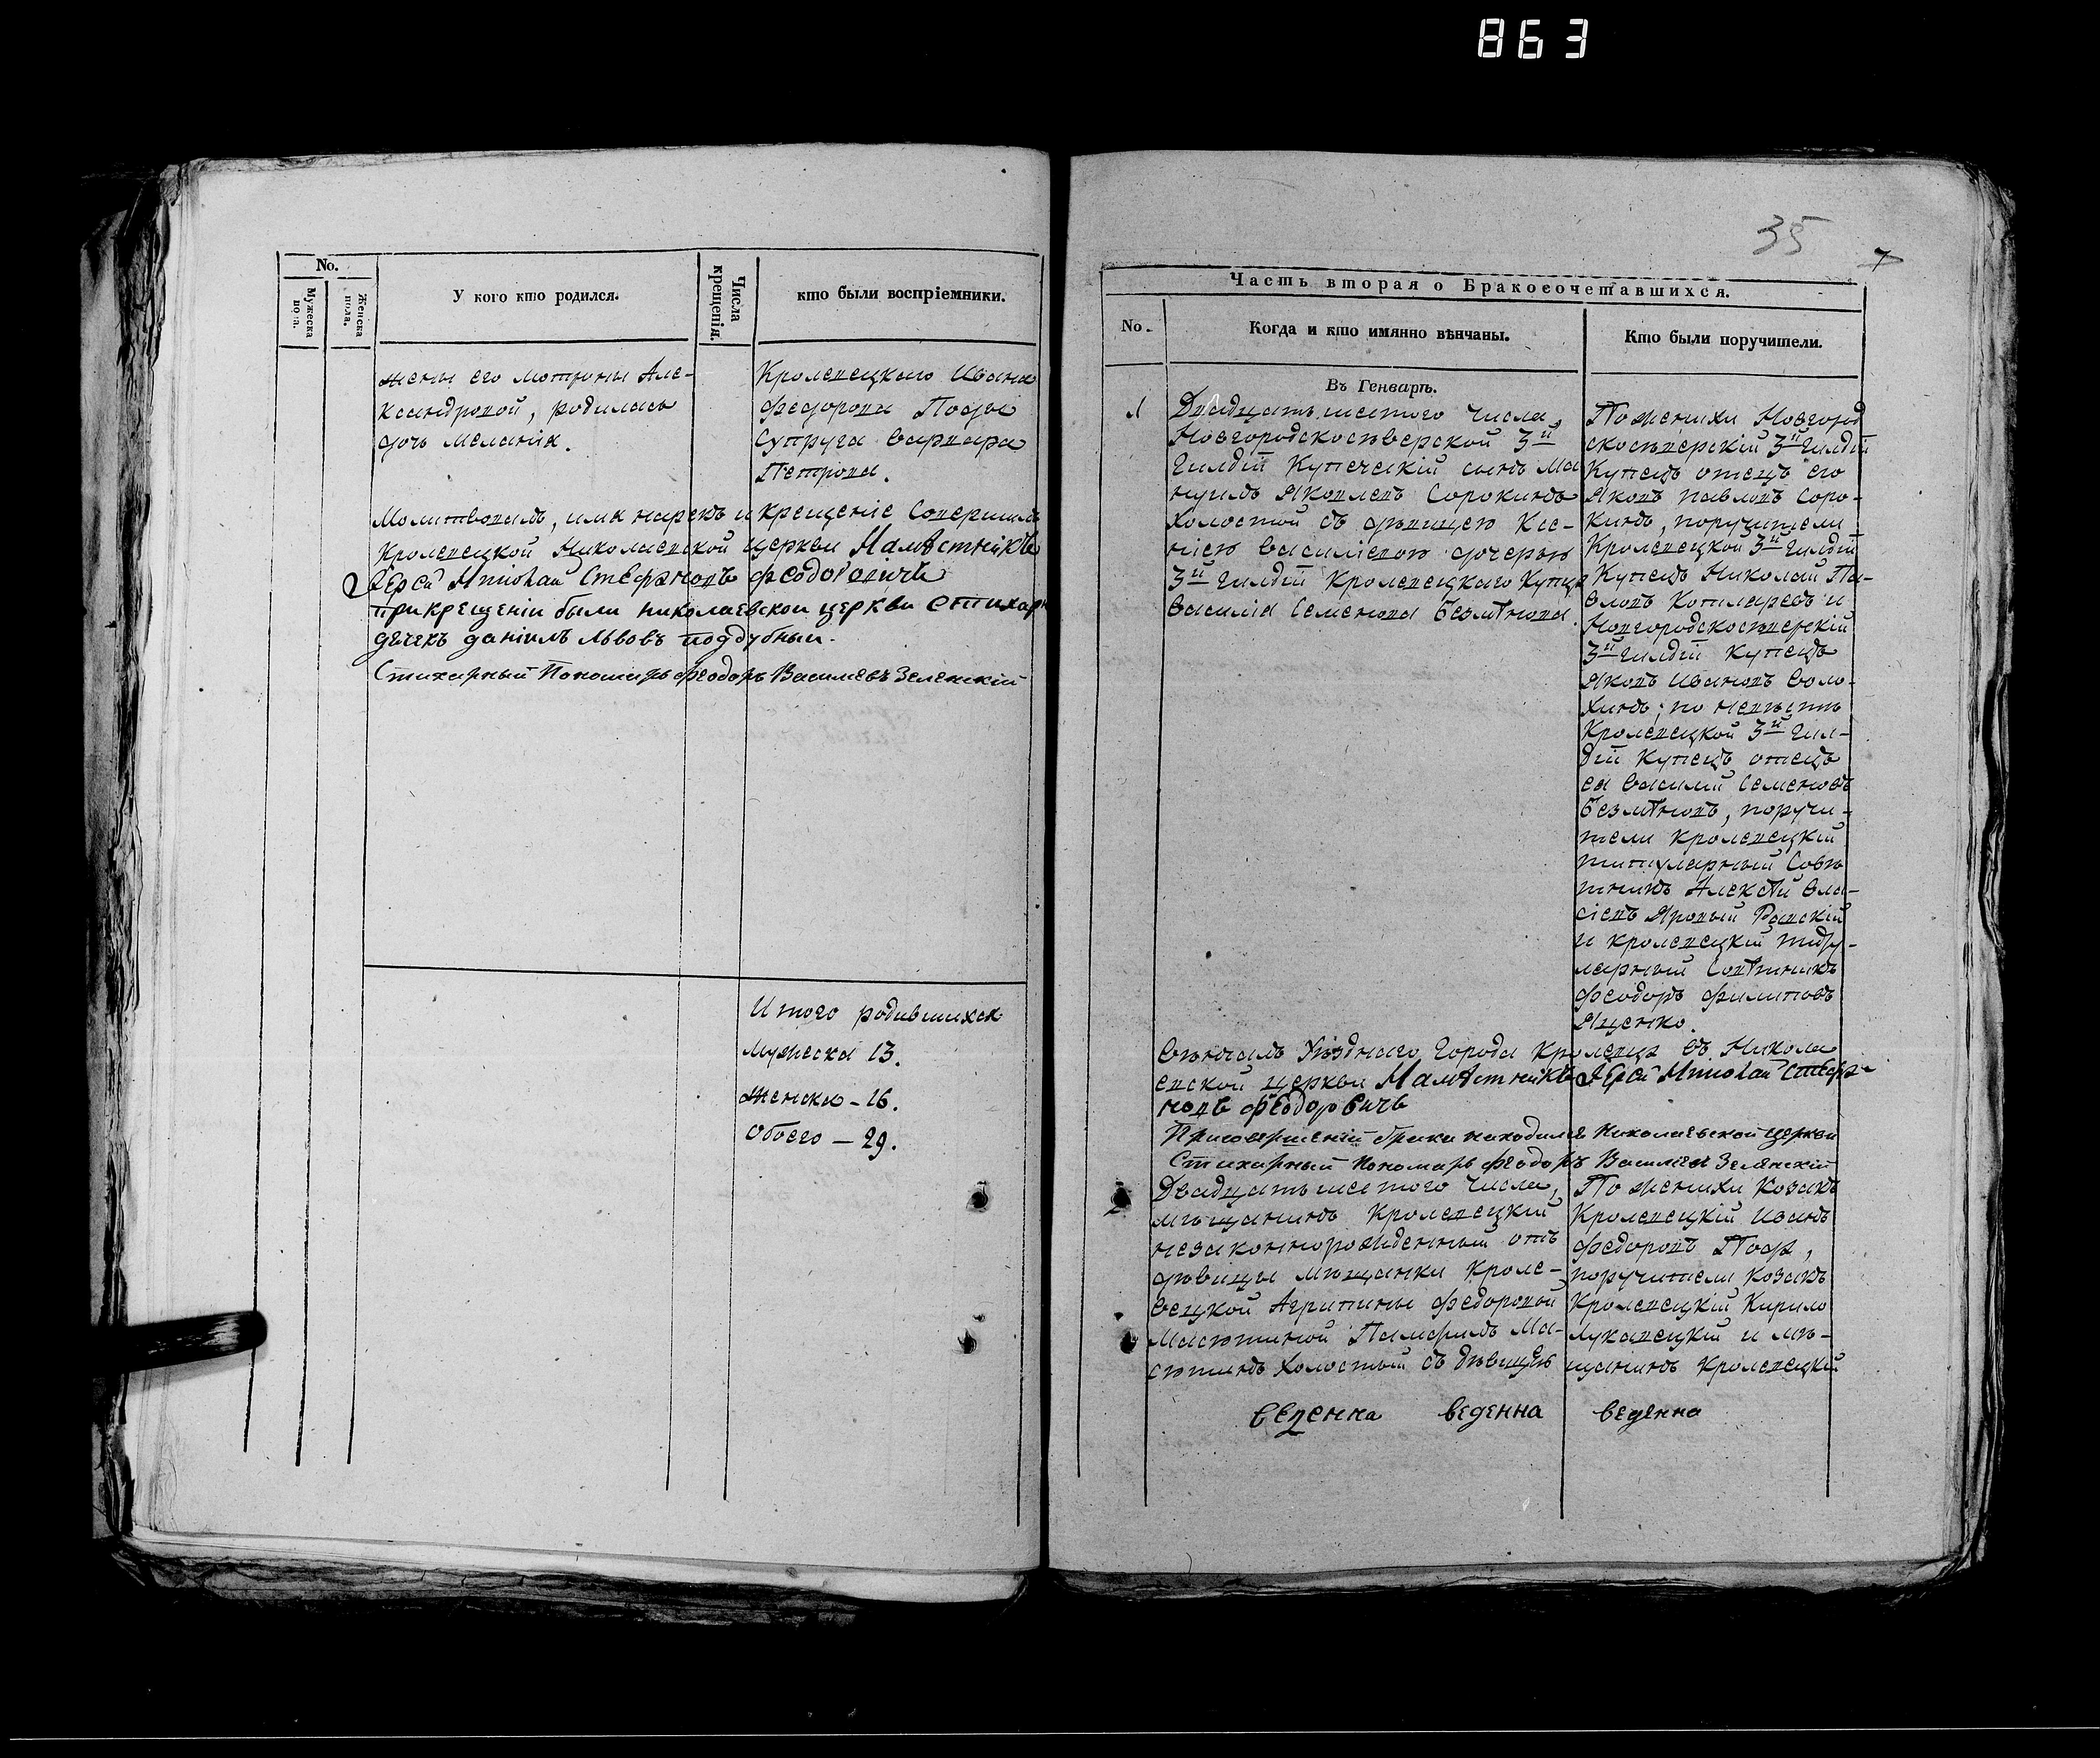 863
No.
Мужеска пола.
Женска пола.
У кого кто родился.
Числа крещенія.
кто были воспріемники.
жены его мотроны Але-
ксандровой, родилась
дочь меланія.
Кролевецкаго Ивана
федорова Пофы
Супруга варвара
Петрова.
Молитвовалъ, имя нарекъ и крещеніе Совершилъ
Кролевецкой Николаевской церкви Намѣстникъ
Іерей Стефановъ феодоровичъ
при крещеніи были николаевской церкви стихарн
дячекъ даніилъ львовъ поддубный.
Стихарный Пономарь феодоръ Василіевъ Зеленскій
Итого родившихся
Мужеска 13.
Женска – 16.
Обоего – 29.
35
7
Часть вторая о Бракосочетавшихся.
No.
Когда и кто имянно вѣнчаны.
Кто были поручители.
Въ Генварѣ.
1
Двадцать шестого числа,
Новгородскосѣверской 3й
Гилдіи Купеческій сынъ Ма
нуилъ Яковлевъ Сорокинъ
холостой съ дѣвицею Ксе-
ніею василіевою дочерью
3й Гилдіи Кролевецкаго Купца
Василія Семенова Безмѣнова.
По женихи Новгород
скосѣверскій 3й Гилдіи
Купецъ отецъ его
Яковъ павловъ соро-
кинъ, поручители
Кролевецкой 3й Гилдіи
Купецъ Николай Па-
вловъ Котляревъ и
Новгородскосѣверскій
3й Гилдіи Купецъ
Яковъ Ивановъ Воло-
хинъ; по невѣстѣ
Кролевецкой 3й Гил-
діи Купецъ отецъ
ея василій Семеновъ
Безмѣновъ, поручи-
тели кролевецкій
титулярный Совѣ
тникъ Алексѣй Вла-
сіевъ Яровый
и кролевецкій титу-
лярный Совѣтникъ
феодоръ филиповъ
Яценко.
Вѣнчалъ Уѣзднаго Города Кролевца въ Никола
евской церкви Намѣстникъ Іерей Стефа-
новъ феодоровичъ
При совершеніи брака находился Николаевской церкви
Стихарный Пономарь феодоръ Василіевъ Зеленскій
Двадцать шестого числа,
мѣщанинъ Кролевецкій
незаконнорожденный отъ
дѣвицы мѣщанки Кроле-
вецкой Агрипины федоровой
Масютиной Памфилъ Ма-
сютинъ холостый съ дѣвицею
По женихи Козакъ
Кролевецкій Иванъ
федоровъ Пофа,
поручители Козакъ
Кролевецкій Кирило
Лукавецкій и мѣ-
щанинъ Кролевецкій
веденна веденна веденна